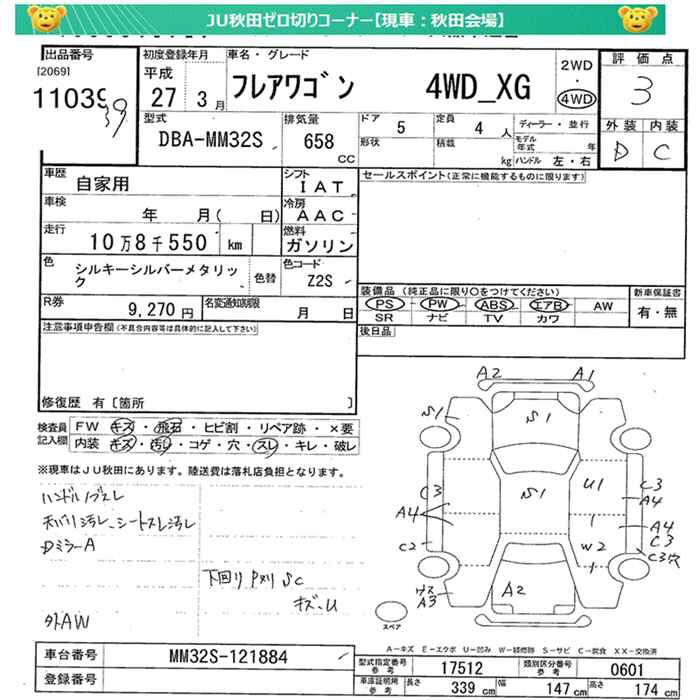 JU秋田ゼロ切りコーナー【現車：秋田会場】
出品番号 初度登録年月 車名・グレード 評価点
[2069] 平成 2WD
11039 27 3月 フレアワゴン 4WD_XG ・ 3
39 4WD
型式 排気量 ドア 5 定員 4 人 ディーラー・並行 外装 内装
DBA-MM32S 658 CC 形状 積載 kg モデル年式 年 D C
ハンドル 左・右
車歴 自家用 シフト IAT セールスポイント(正常に機能するものに限ります)
車検 年 月( 日) 冷房 AAC
走行 10万8千550 km 燃料 ガソリン
色 シルキーシルバーメタリック 色替 色コード Z2S
装備品 (純正品に限り○をつけてください) 新車保証書
R券 9,270円 名変通知期限 月 日 PS PW ABS エアB AW 有・無
SR ナビ TV カワ
注意事項申告欄(不具合内容等は具体的に記入して下さい) 後日品
修復歴 有〔箇所 〕
検査員 FW キズ・飛石・ヒビ割・リペア跡・×要
記入欄 内装 キズ・汚れ・コゲ・穴・スレ・キレ・破レ
※現車はJU秋田にあります。陸送費は落札店負担となります。
ハンドルノブスレ
天バリ汚レ、シートスレ汚レ
Dミラー A
下回り Pヌリ SC
キズ-U
外AW
A2 A1
S1 S1
C3 S1 U1 C3
A4 A4
A4
C2 W2 C3
C3穴
A3 A2
スペア
A－キズ E－エクボ U－凹み W－補修跡 S－サビ C－腐食 XX－交換済
車台番号 MM32S-121884
登録番号
型式指定番号 参考 17512 類別区分番号 参考 0601
車庫証明用 参考 長さ 339 cm 幅 147 cm 高さ 174 cm